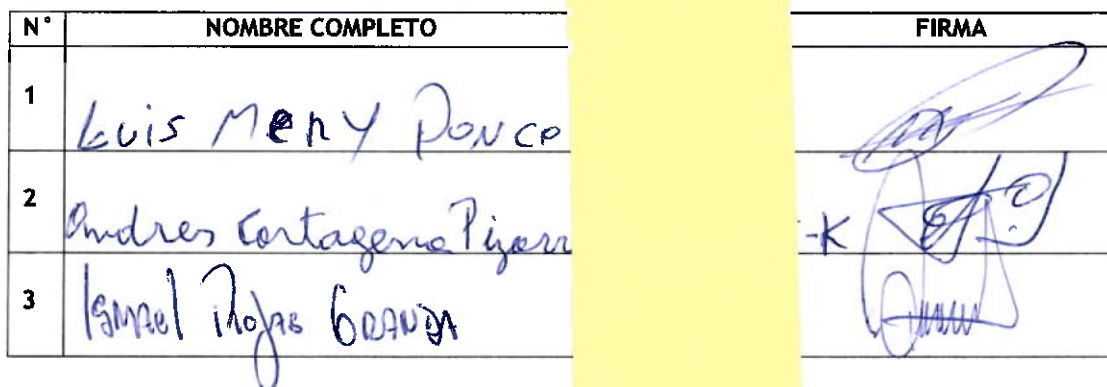 N° NOMBRE COMPLETO FIRMA
1 Luis Mery Ponce
2 Andres Cartagena Pizarr -K
3 Ismael Rojas GRANDA